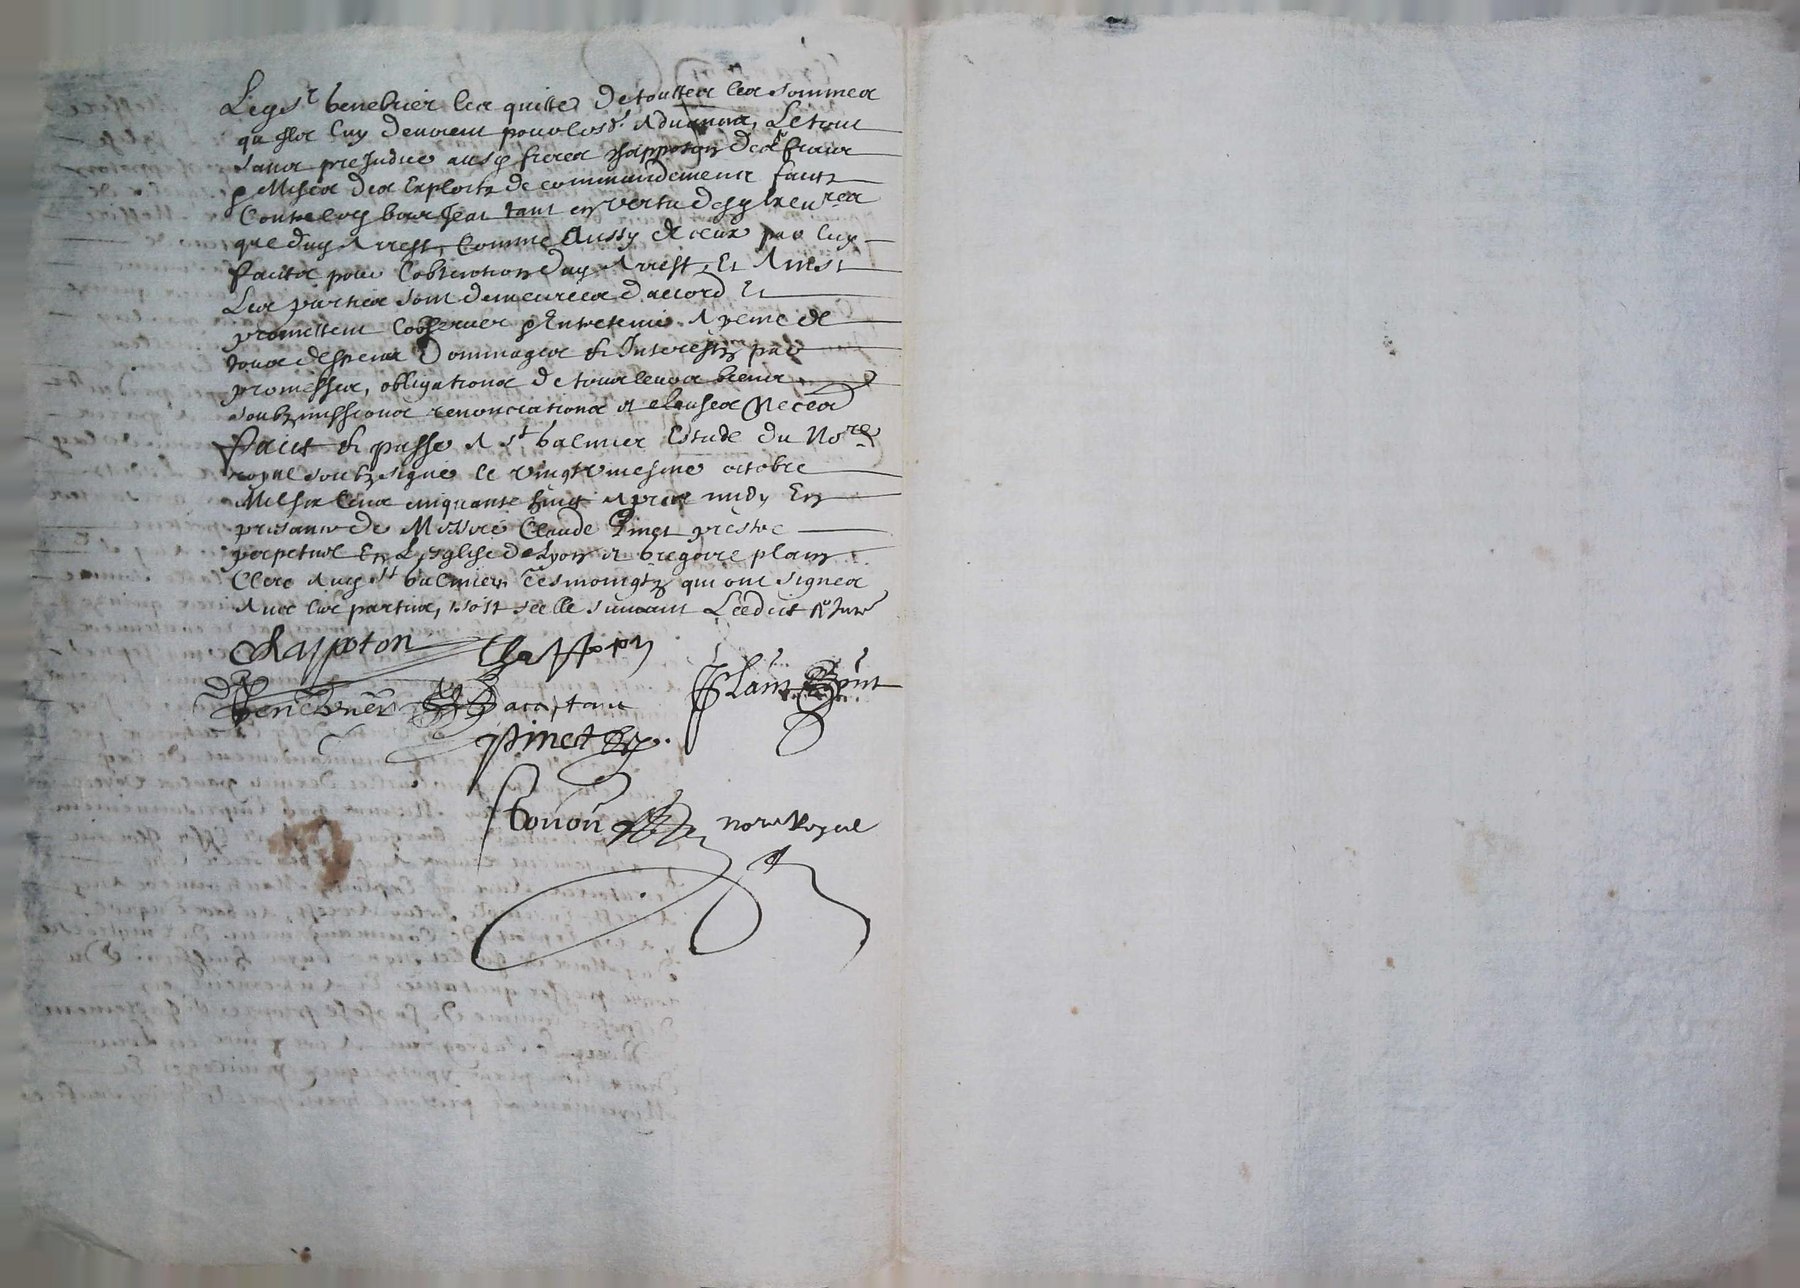 Led sr Venebrier les quitte de touttes les sommes
qu Ilz luy devoient pour lesd.
sans prejudice ausd freres Chappoton des fraix
& Mises des Exploitz de commandement faictz
Contre
que dud Arrest, Comme Aussy de ceux par luy
faictz pour L'obtention dud Arrest, Et Ainsi
Les parties sont demeurées d'accord Et
promettent L'observer & Entretenir A peine de
tous despens Dommages & Interestz par
promesses, obligations de tous leurs biens
soubzmissions renonciations et clauses Neces
Faict & passé A st Galmier Estude du Nore
royal soubzsigné le vingt mesme octobre
Mil six Centz cinquante huict Apres midy En
presance de Messire Claude Pinet prestre
perpetuel En L'esglise de Lyon et Gregoire plain
Clerc Aud st Galmier tesmoingtz qui ont signé
Avec les parties, soit seellé suivant L'edict
Chappoton Chappoton
Venebrier acceptant Plain
Pinet
nore Royal